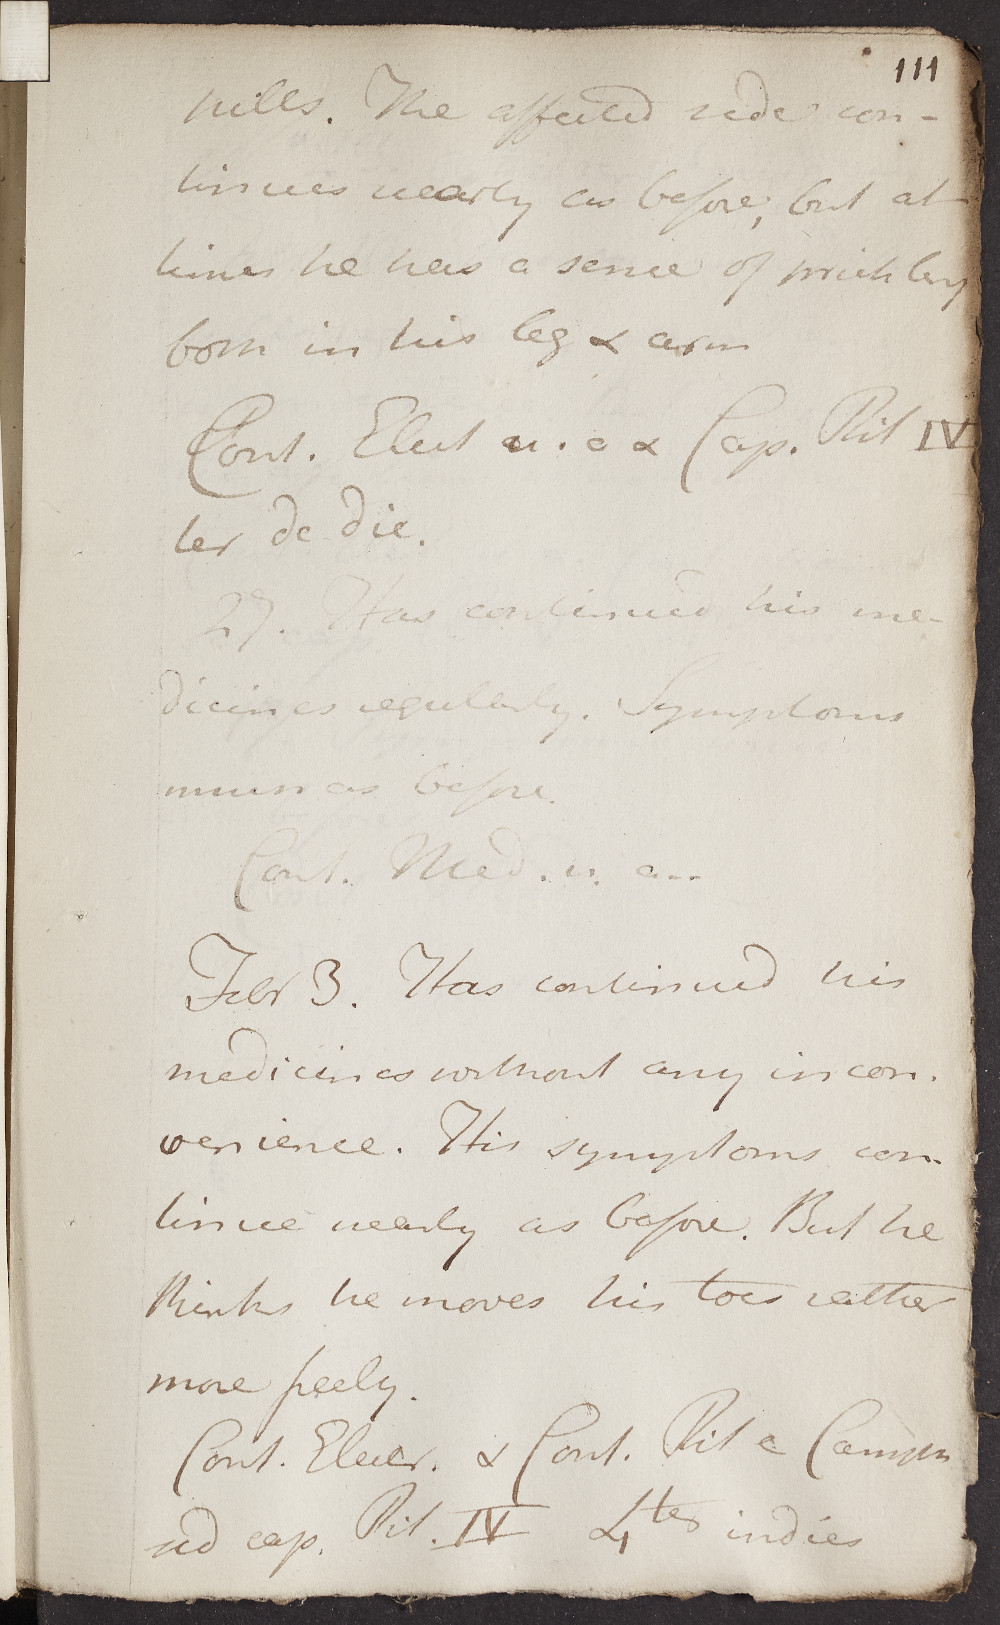 111
pills. The affected side con-
tinues nearly as before, but at
times he has a sense of prickley
born in his leg & arm
Cont. Elect u. a & Cap. Pil IV
ter de die.
27. Has continued his me-
dicines regularly. Symptoms
much as before.
Cont. Med. u. a..
Febr 3. Has continued his
medicines without any incon.
venience. His symptoms con-
tinue nearly as before. But he
thinks he moves his toes rather
more freely.
Cont. Elect. & Cont. Pil e Camph
sed cap. Pil. IV 4ter indies